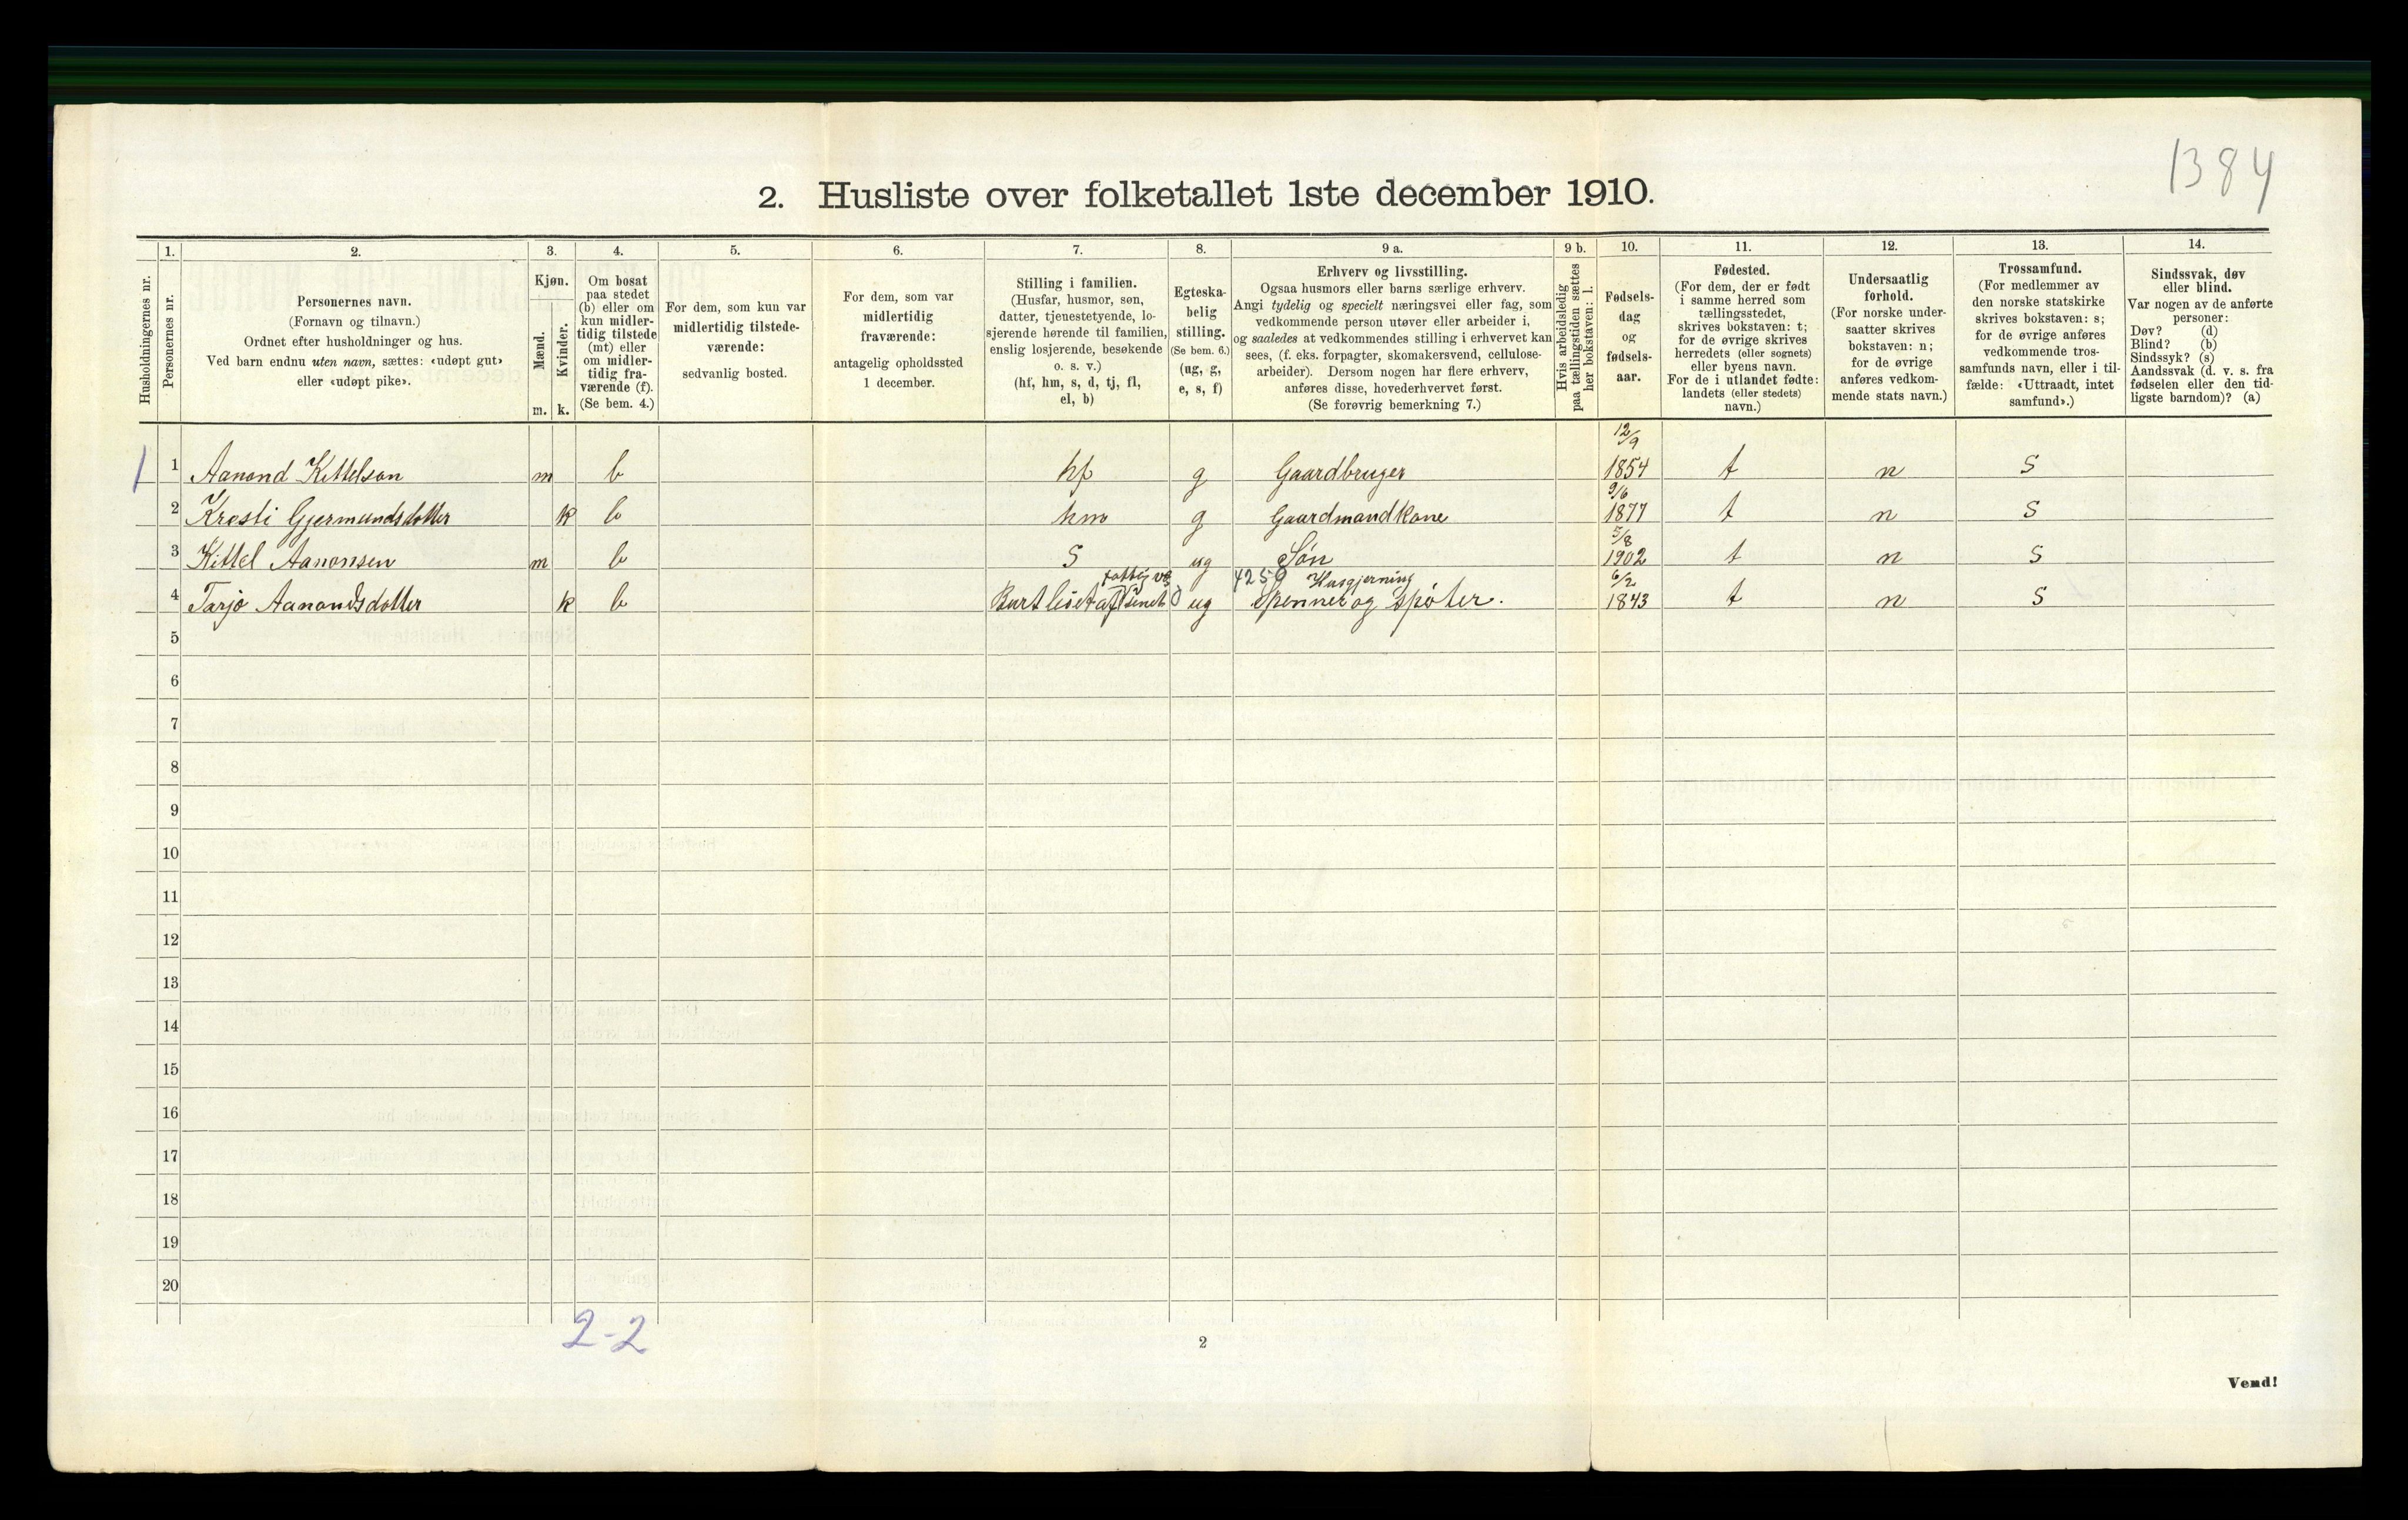 1384
2. Husliste over folketallet 1ste december 1910.
Husholdningernes nr.
1.
Personernes nr.
2.
Personernes navn.
(Fornavn og tilnavn.)
Ordnet efter husholdninger og hus.
Ved barn endnu uten navn, sættes: «udøpt gut»
eller «udøpt pike».
3.
Kjøn.
Mænd.
Kvinder.
m. k.
4.
Om bosat
paa stedet
(b) eller om
kun midler-
tidig tilstede
(mt) eller
om midler-
tidig fra-
værende (f).
(Se bem. 4.)
5.
For dem, som kun var
midlertidig tilstede-
værende:
sedvanlig bosted.
6.
For dem, som var
midlertidig
fraværende:
antagelig opholdssted
1 december.
7.
Stilling i familien.
(Husfar, husmor, søn,
datter, tjenestetyende, lo-
sjerende hørende til familien,
enslig losjerende, besøkende
o. s. v.)
(hf, hm, s, d, tj, fl,
el, b)
8.
Egteska-
belig
stilling.
(Se bem. 6.)
(ug, g,
e, s, f)
9 a.
Erhverv og livsstilling.
Ogsaa husmors eller barns særlige erhverv.
Angi tydelig og specielt næringsvei eller fag, som
vedkommende person utøver eller arbeider i,
og saaledes at vedkommendes stilling i erhvervet kan
sees, (f. eks. forpagter, skomakersvend, cellulose-
arbeider). Dersom nogen har flere erhverv,
anføres disse, hovederhvervet først.
(Se forøvrig bemerkning 7.)
9 b.
Hvis arbeidsledig
paa tællingstiden sættes
her bokstaven: l.
10.
Fødsels-
dag
og
fødsels-
aar.
11.
Fødested.
(For dem, der er født
i samme herred som
tællingsstedet,
skrives bokstaven: t;
for de øvrige skrives
herredets (eller sognets)
eller byens navn.
For de i utlandet fødte:
landets (eller stedets)
navn.)
12.
Undersaatlig
forhold.
(For norske under-
saatter skrives
bokstaven: n;
for de øvrige
anføres vedkom-
mende stats navn.)
13.
Trossamfund.
(For medlemmer av
den norske statskirke
skrives bokstaven: s;
for de øvrige anføres
vedkommende tros-
samfunds navn, eller i til-
fælde: «Uttraadt, intet
samfund».)
14.
Sindssvak, døv
eller blind.
Var nogen av de anførte
personer:
Døv? (d)
Blind? (b)
Sindssyk? (s)
Aandssvak (d. v. s. fra
fødselen eller den tid-
ligste barndom)? (a)
12/9
1 1 Aanond Kittelson m b hf g Gaardbruger 1854 t n S
9/6
2 Kresti Gjermundsdotter k b hm g Gaardmandkone 1877 t n S
5/8
3 Kittel Aanonsen m b S ug Søn 1902 t n S
4250 Husgjerning 6/2
4 Tarjo Aanondsdotter k b ug Spenner og spøter. 1843 t n S
5
6
7
8
9
10
11
12
13
14
15
16
17
18
19
20
2-2
2
Vend!